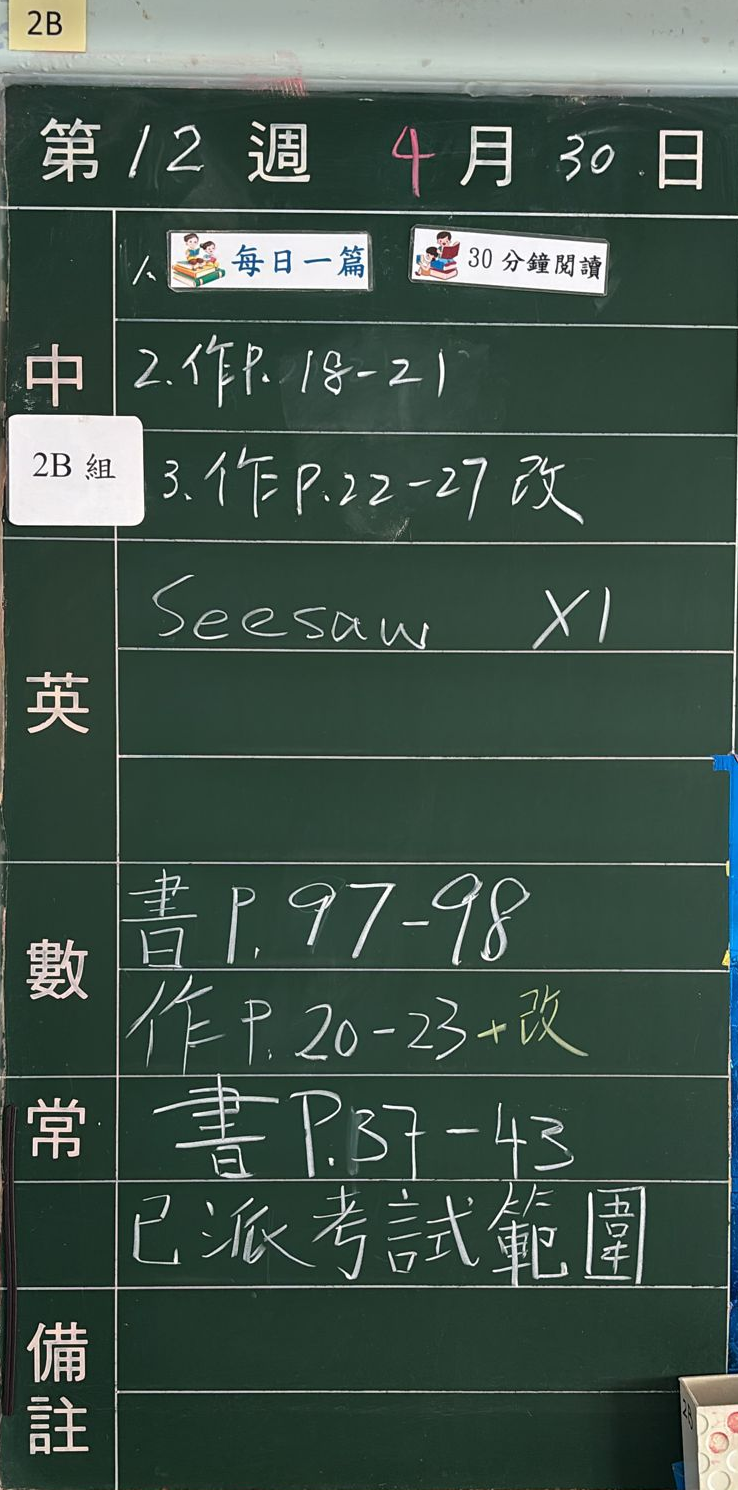 2B
第 12 週 4 月 30 日
1. 每日一篇 30分鐘閱讀
中 2.作P. 18-21
2B 組 3.作P.22-27 改
Seesaw X1
英
書P. 97-98
數
作P. 20-23+改
常 書P.37-43
已派考試範圍
備註
2B